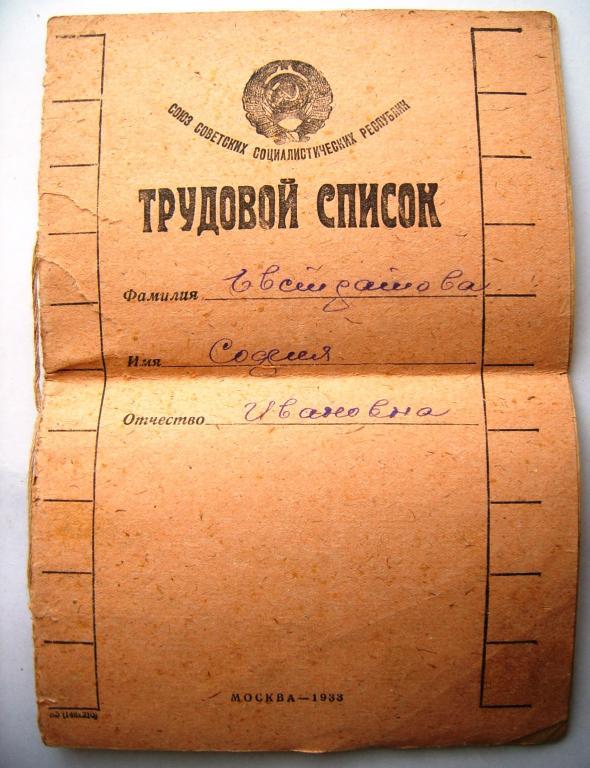 СОЮЗ СОВЕТСКИХ СОЦИАЛИСТИЧЕСКИХ РЕСПУБЛИК
ТРУДОВОЙ СПИСОК
Фамилия
Имя София
Отчество Ивановна
МОСКВА—1933